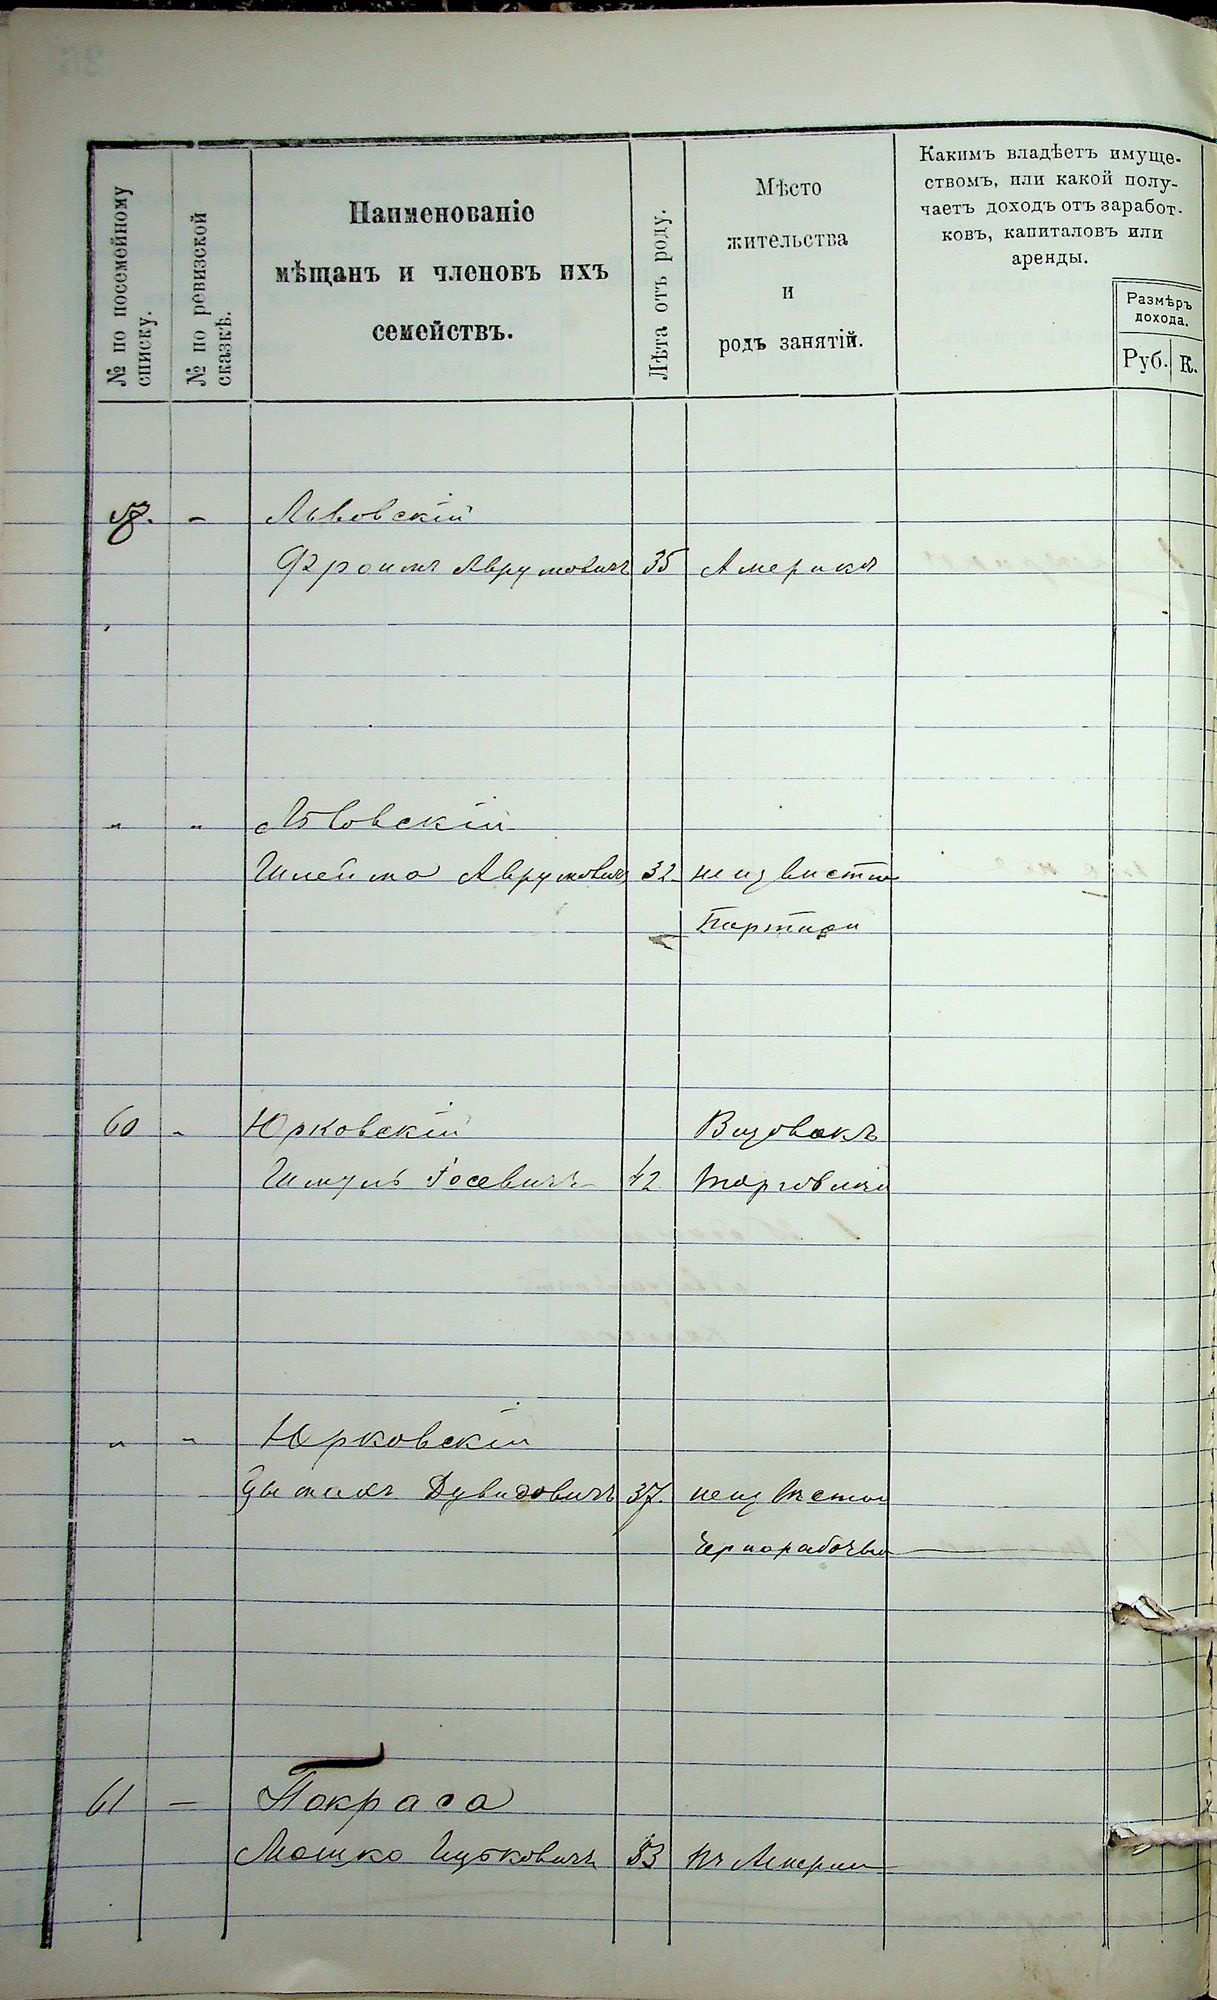 № по посемейному
списку.
№ по ревизской
сказкѣ.
Наименованіе
мѣщанъ и членовъ ихъ
семействъ.
Лѣта отъ роду.
Мѣсто
жительства
и
родъ занятій.
Какимъ владѣетъ имуще-
ствомъ, или какой полу-
чаетъ доходъ отъ заработ-
ковъ, капиталовъ или
аренды.
Размѣръ
дохода.
Руб. К.
- Львовскій
Фроимъ Аврумовичъ 35 Америка
" " Львовскій
Шлейма Аврумовичъ 32 неизвистно
60 - Юрковскій
Шмуль Іосевичъ 42 торговлей
" " Юрковскій
Дувидовичъ 37.
Чернорабочый
61 — Покраса
Мошко Ицковичъ 53